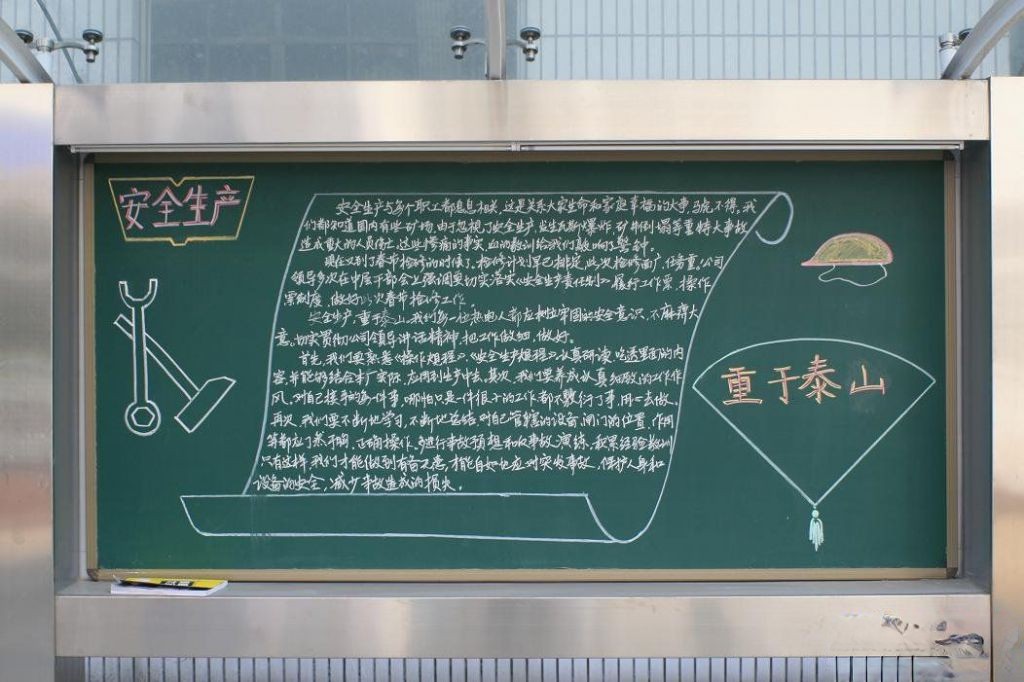 安全生产
安全生产与每个职工都息息相关,这是关系大家生命和家庭幸福的大事,马虎不得。我
们都知道国内有些矿物,由于忽视了安全生产,发生瓦斯爆炸,矿井倒塌等重特大事故
造成重大的人员伤亡,这些惨痛的事实,血的教训给我们敲响了警钟。
现在又到了春节检修的时候了。检修计划早已排定,此次检修面广,任务重。公司
领导多次在中层干部会上强调要切实落实《安全生产责任制》履行工作票,操作
票制度,做好此次春节检修工作。
安全生产,重于泰山,我们每一位热电人都应树立牢固的安全意识,不麻痹大
意。切实贯彻公司领导讲话精神,把工作做细,做好。
首先,我们要熟悉《操作规程》,《安全生产规程》认真研读,吃透里面的内
容,并能够结合本厂实际,应用到生产中去。其次,我们要养成认真细致的工作作
风,对自己接手的每一件事,哪怕只是一件很小的工作都不敷衍了事,用心去做。
再次,我们要不断地学习,不断地总结,对自己管辖的设备,阀门的位置,作用
等都应了然于胸,正确操作,多进行事故预想和反事故演练,积累经验教训
只有这样,我们才能做到有备无患,才能自如地应对突发事故,保护人身和
设备的安全,减少事故造成的损失。
重于泰山